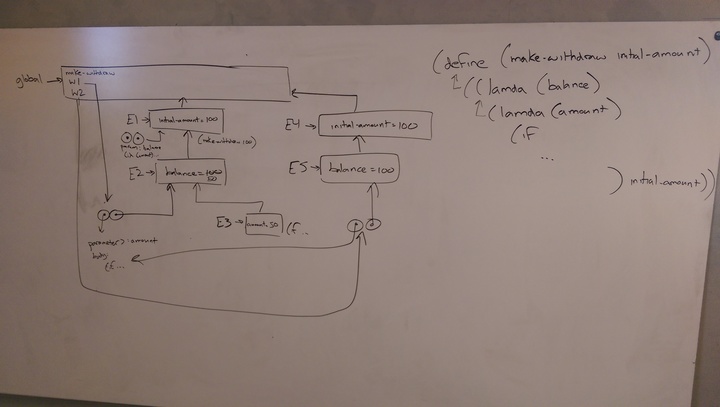 global
make-withdraw
W1
W2
E1
initial-amount = 100
(make-withdraw 100)
param: balance
E2
balance = 100
50
E3
amount: 50
(if ...
parameters: amount
body:
(if ...
E4
initial-amount = 100
E5
balance = 100
(define (make-withdraw intial-amount)
((lamda (balance)
(lamda (amount)
(if
...
) initial-amount))